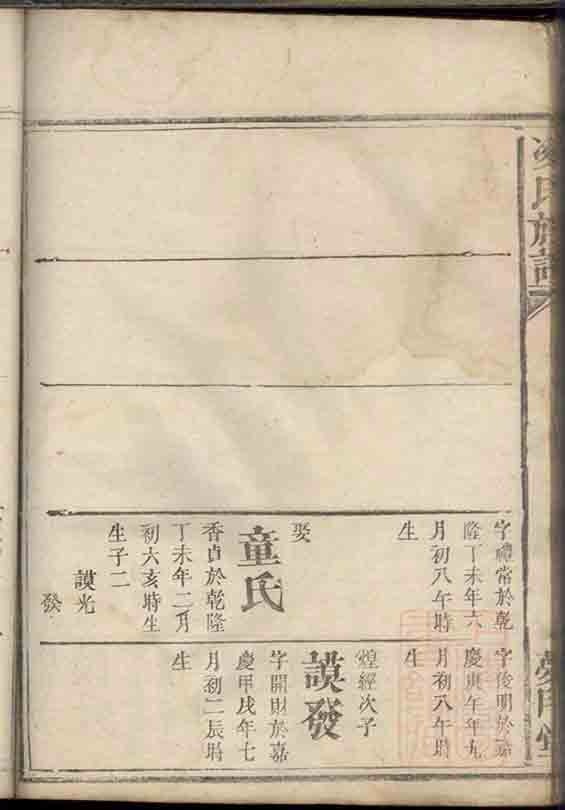 氏族譜
字禮常於乾
隆丁未年六
月初八午時
生
娶
童氏
香貞於乾隆
丁未年二月
初六亥時生
生子二
謨光
發
字後明於嘉
慶庚午年九
月初八午時
生
煌經次子
謨發
字開財於嘉
慶甲戌年七
月初二辰時
生